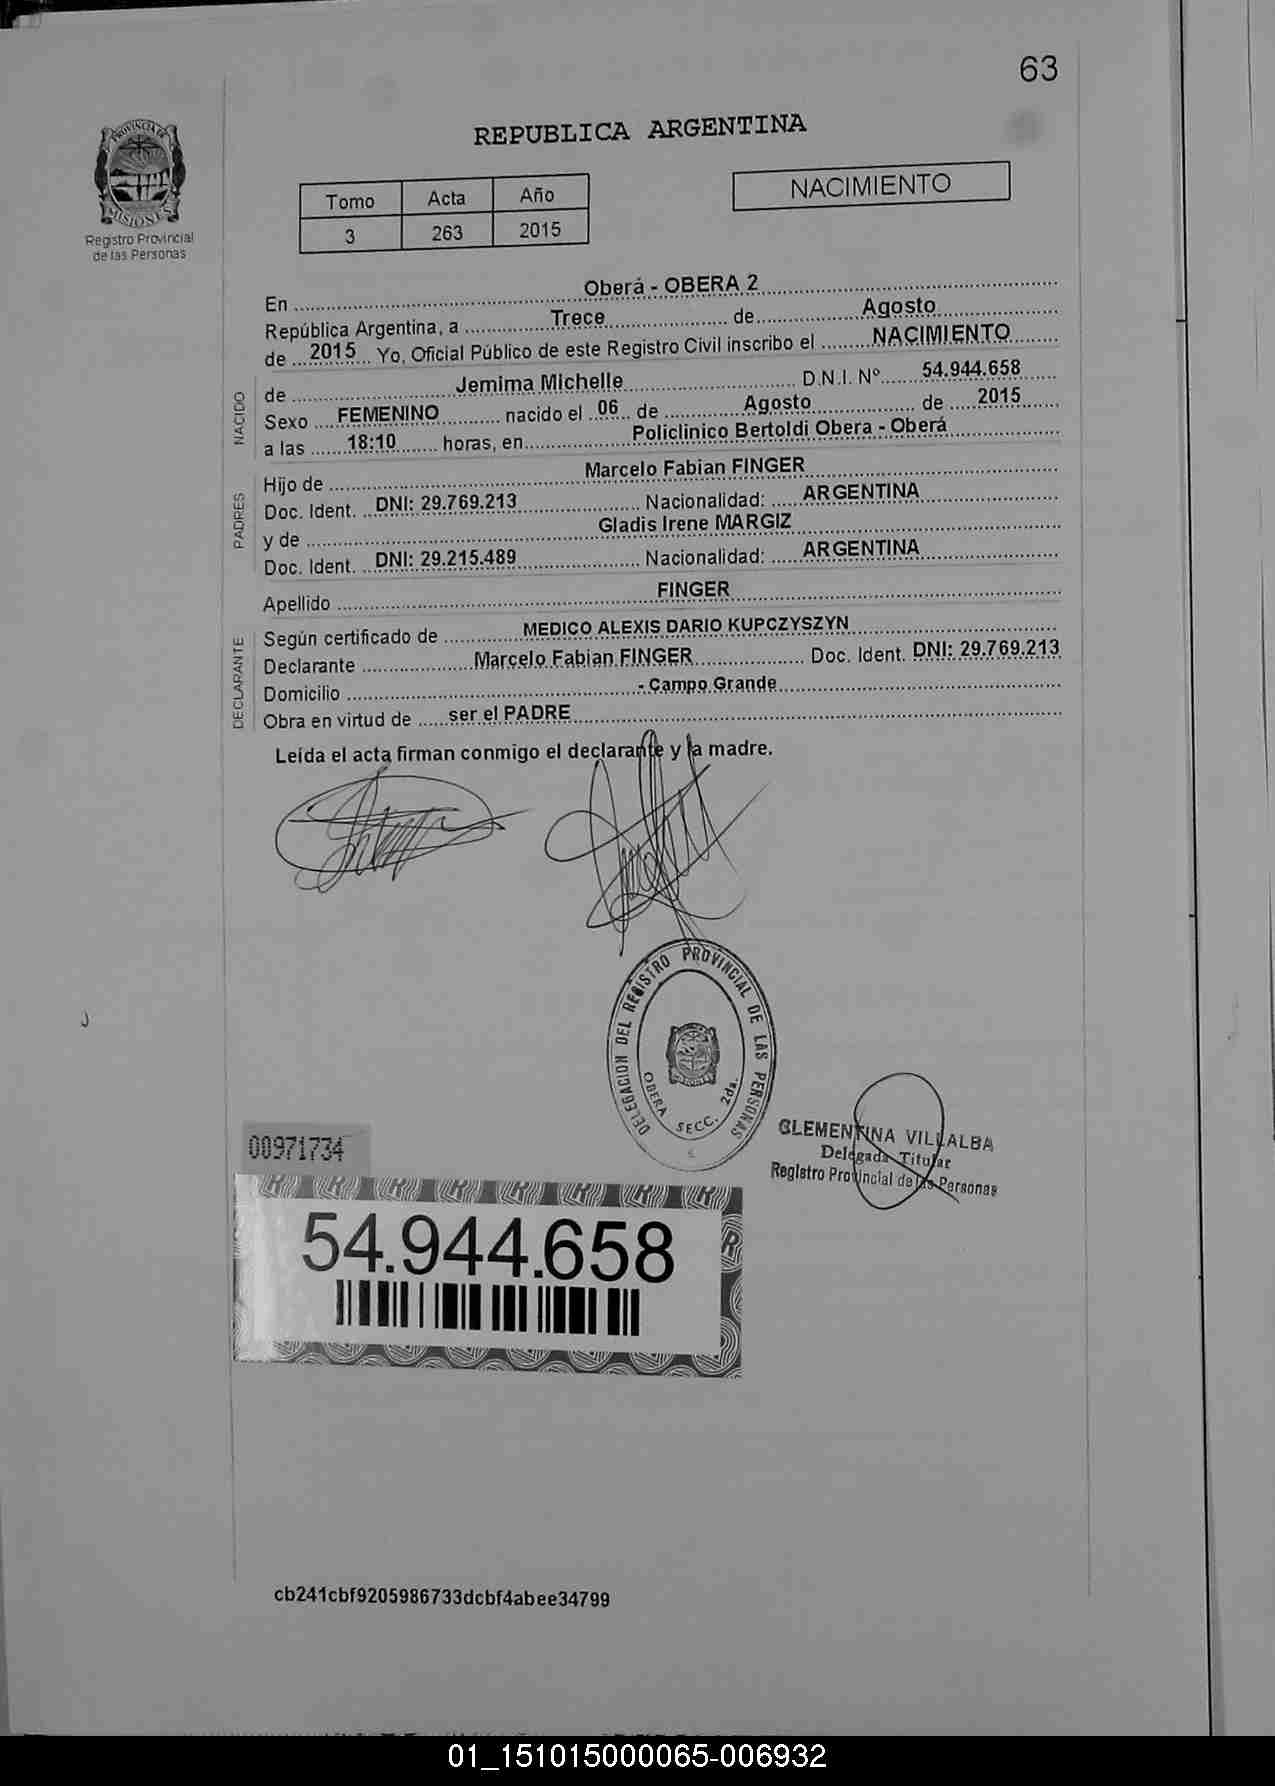 63
PROVINCIA DE
MISIONES
Registro Provincial
de las Personas
REPUBLICA ARGENTINA
Tomo Acta Año
3 263 2015
NACIMIENTO
En Oberá - OBERA 2
República Argentina, a Trece de Agosto
de 2015 Yo, Oficial Público de este Registro Civil inscribo el NACIMIENTO
NACIDO
de Jemima Michelle D.N.I. Nº 54.944.658
Sexo FEMENINO nacido el 06 de Agosto de 2015
a las 18:10 horas, en Policlinico Bertoldi Obera - Oberá
PADRES
Hijo de Marcelo Fabian FINGER
Doc. Ident. DNI: 29.769.213 Nacionalidad: ARGENTINA
y de Gladis Irene MARGIZ
Doc. Ident. DNI: 29.215.489 Nacionalidad: ARGENTINA
Apellido FINGER
DECLARANTE
Según certificado de MEDICO ALEXIS DARIO KUPCZYSZYN
Declarante Marcelo Fabian FINGER Doc. Ident. DNI: 29.769.213
Domicilio - Campo Grande
Obra en virtud de ser el PADRE
Leída el acta firman conmigo el declarante y la madre.
DELEGACION DEL REGISTRO PROVINCIAL DE LAS PERSONAS
OBERA SECC. 2da.
CLEMENTINA VILLALBA
Delegada Titular
Registro Provincial de las Personas
00971734
54.944.658
cb241cbf9205986733dcbf4abee34799
01_151015000065-006932